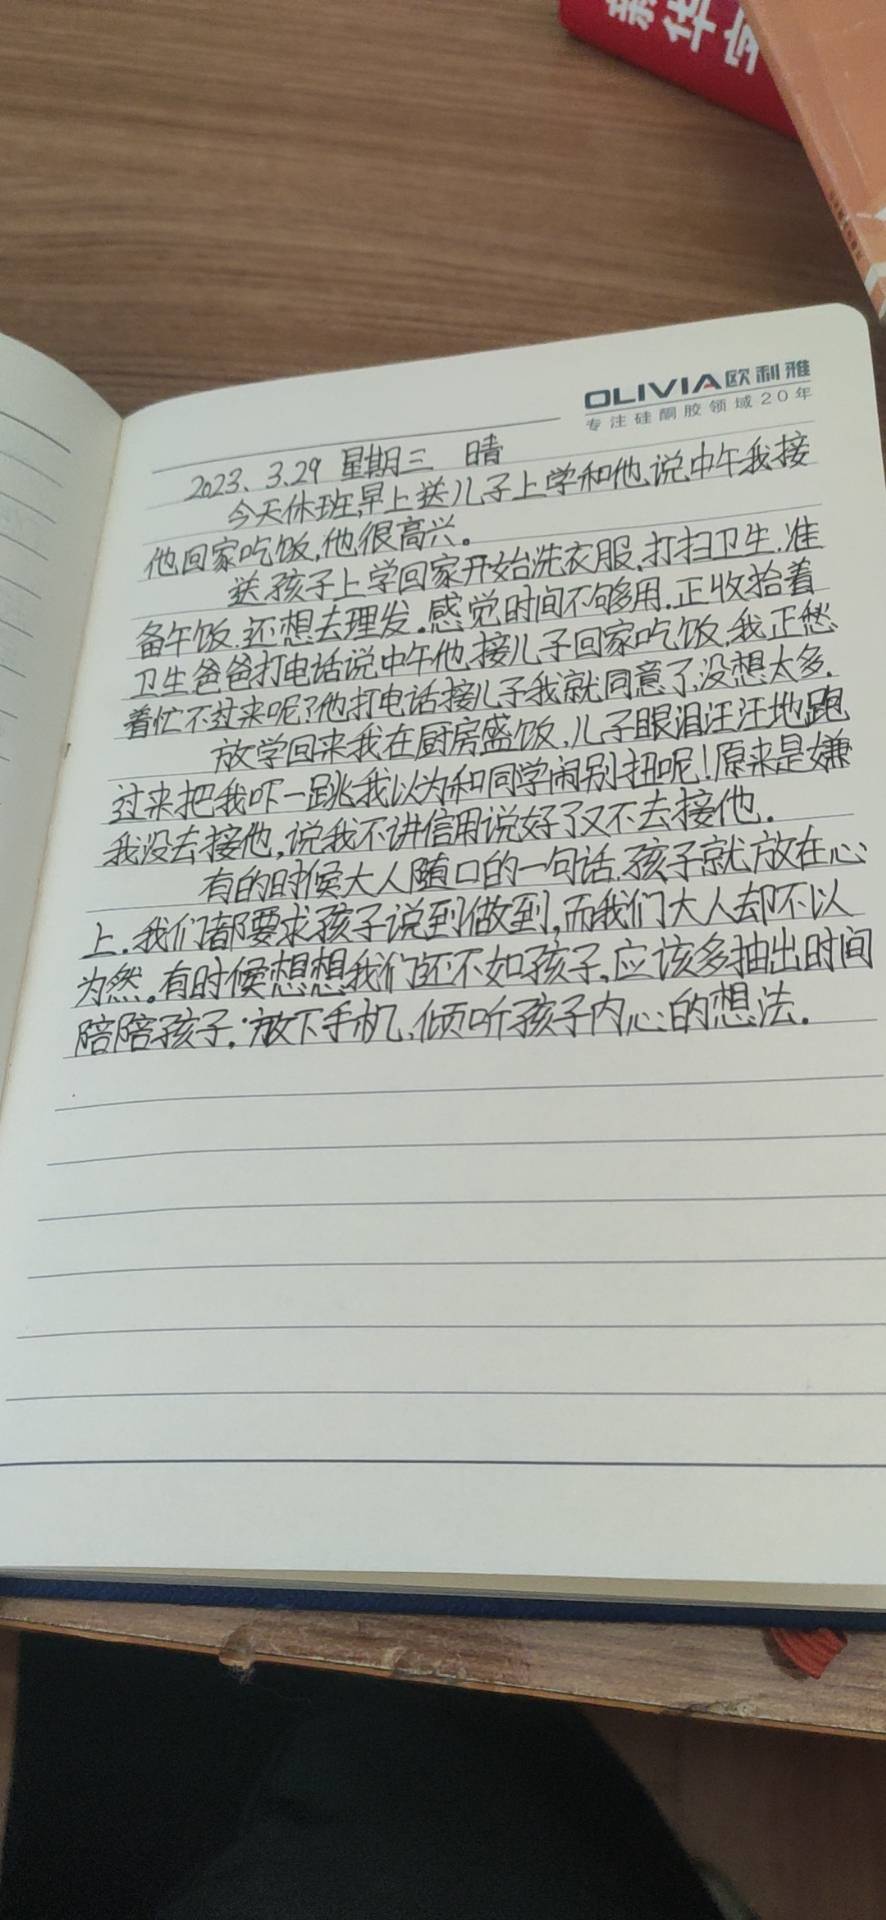 新华字
OLIVIA欧利雅
专注硅酮胶领域20年
2023、3.29 星期三 晴
今天休班,早上送儿子上学和他说中午我接
他回家吃饭,他很高兴。
送孩子上学回家开始洗衣服、打扫卫生.准
备午饭.还想去理发。感觉时间不够用.正收拾着
卫生爸爸打电话说中午他接儿子回家吃饭,我正愁
着忙不过来呢?他打电话接儿子我就同意了,没想太多.
放学回来我在厨房盛饭,儿子眼泪汪汪地跑
过来把我吓一跳,我以为和同学闹别扭呢!原来是嫌
我没去接他,说我不讲信用说好了又不去接他.
有的时候大人随口的一句话.孩子就放在心
上.我们都要求孩子说到做到,而我们大人却不以
为然。有时候想想我们还不如孩子,应该多抽出时间
陪陪孩子.放下手机,倾听孩子内心的想法.